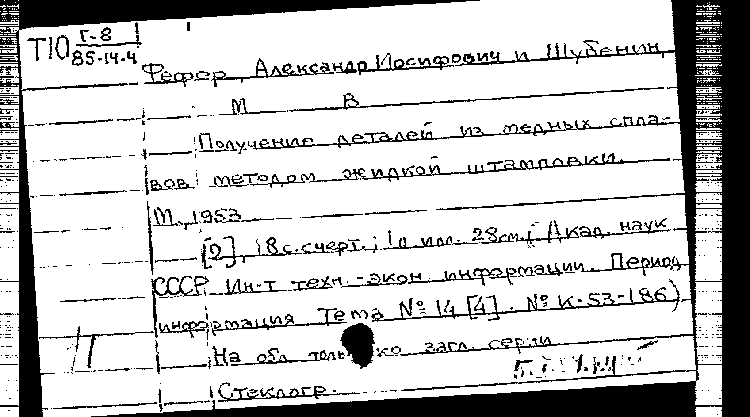 Т10 Г-8
85-14-4
Фефер, Александр Иосифович и Шубенин,
М В
Получение деталей из медных спла-
вов методом жидкой штамповки.
М., 1953
[2], 18 с. с черт.; 1 л илл. 28 см. (Акад. наук
СССР. Ин-т техн.-экон информации. Период
информация Тема № 14 [4]. № К-53-186)
На обл. только загл. серии
Стеклогр.